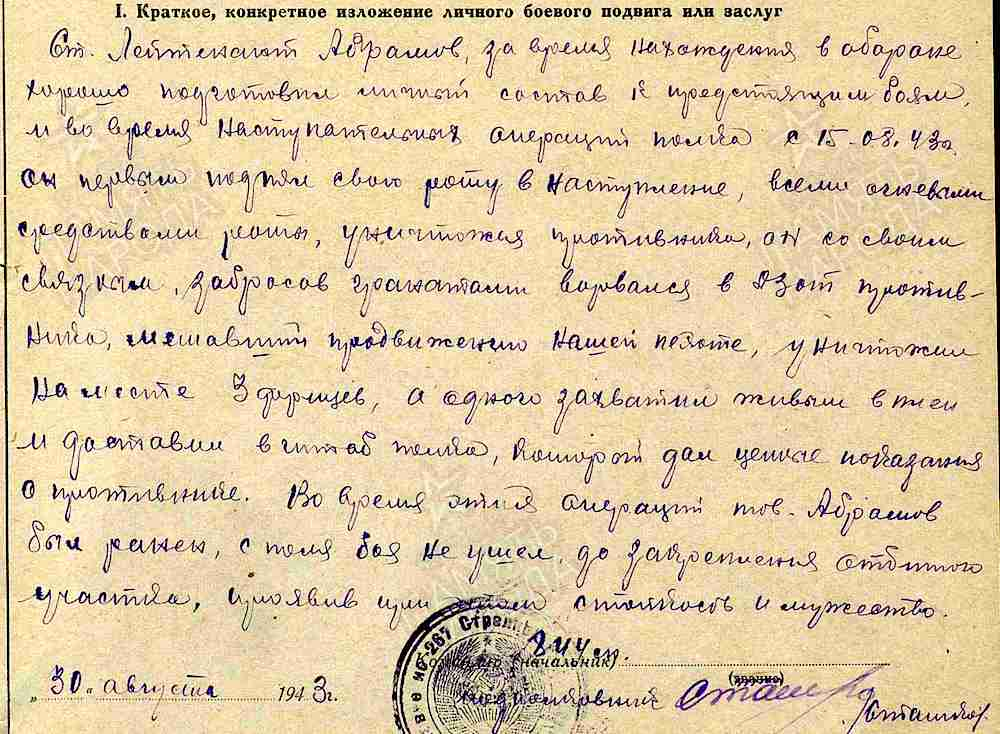 I. Краткое, конкретное изложение личного боевого подвига или заслуг
Ст. Лейтенант Абрамов, за время нахождения в обароне
хорошо подготовил личный состав к предстоящим боям,
и во время наступательных операций полка с 15.08.43г.
он первым поднял свою роту в наступление, всеми огневыми
средствами роты, уничтожая противника, он со своим
связным, забросав гранатами ворвался в ДЗот против-
ника, мешавший продвижению нашей пехоте, уничтожил
на месте 3 фрицев, а одного захватил живым в плен
и доставил в штаб полка, который дал ценные показания
о противнике. Во время этих операций тов. Абрамов
был ранен, с поля боя не ушел, до закрепления отбитого
участка, проявив при этом стойкость и мужество.
844 сп.
(начальник)
(звание)
"30" августа 1943г.
№ 267 Стрелк